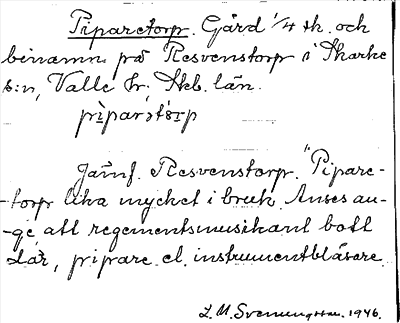 Piparetorp. Gård 1/4 th. och
binamn på Resvenstorp i Skarke
s:n, Valle hr. Skb. län.
Jämf. Resvenstorp. "Pipare-
-torp lika mycket i bruk. Anses an-
-ge, att regementsmusikant bott
där, pipare el. instrumentblåsare.
L. M. Svenungsson. 1946.